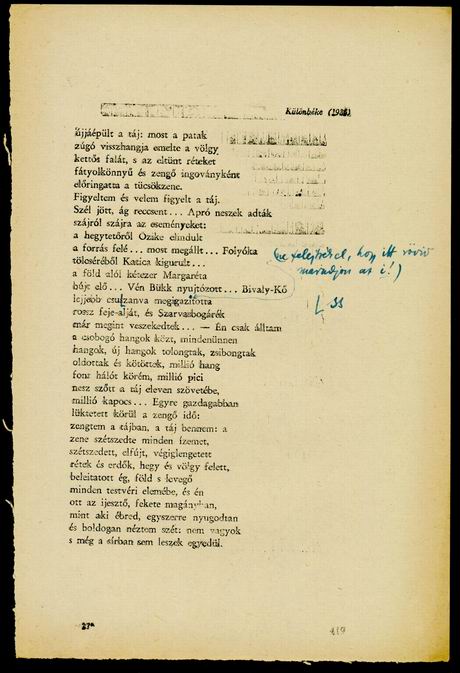 Különbéke (1936)
újjáépült a táj: most a patak
zúgó visszhangja emelte a völgy
kettős falát, s az eltünt réteket
fátyolkönnyű és zengő ingoványként
előringatta a tücsökzene.
Figyeltem és velem figyelt a táj.
Szél jött, ág reccsent... Apró neszek adták
szájról szájra az eseményeket:
a hegytetőről Őzike elindult
a forrás felé... most megállt... Folyóka
tölcséréből Katica kigurult...
a föld alól kétezer Margaréta
búje elő... Vén Bükk nyujtózott... Bivaly-Kő
lejjebb csuszanva megigazította
rossz feje-alját, és Szarvasbogárék
már megint veszekedtek... — Én csak álltam
a csobogó hangok közt, mindenünnen
hangok, új hangok tolongtak, zsibongtak
oldottak és kötöttek, millió hang
font hálót körém, millió pici
nesz szőtt a táj eleven szövetébe,
millió kapocs... Egyre gazdagabban
lüktetett körül a zengő idő:
zengtem a tájban, a táj bennem: a
zene szétszedte minden ízemet,
szétszedett, elfújt, végiglengetett
rétek és erdők, hegy és völgy felett,
beleitatott ég, föld s levegő
minden testvéri elemébe, és én
ott az ijesztő, fekete magányban,
mint aki ébred, egyszerre nyugodtan
és boldogan néztem szét: nem vagyok
s még a sírban sem leszek egyedül.
(ne felejtsd el, hogy itt rövid
maradjon az i!)
ss
27*
419